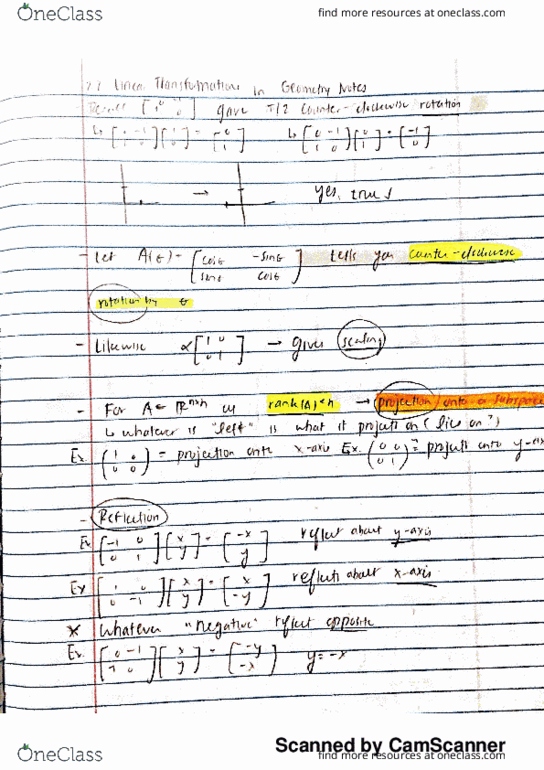 OneClass
find more resources at oneclass.com
Linear Transformations in Geometry Notes
gave π/2 counter-clockwise rotation
↳ [0 -1; 1 0][1; 0] = [0; 1] ↳ [0 -1; 1 0][0; 1] = [-1; 0]
→ yes, true
- Let A(θ) = [cosθ -sinθ; sinθ cosθ] tells you counter-clockwise
rotation by θ
- Likewise α[1 0; 0 1] → gives scaling
- For A ∈ ℝⁿˣⁿ w/ rank(A)<n → projection onto a subspace
↳ whatever is "left" is what it projects on (lies on?)
Ex. (1 0; 0 0) = projection onto x-axis Ex. (0 0; 0 1) = projects onto y-axis
- Reflection
Ex [-1 0; 0 1][x; y] = [-x; y] reflect about y-axis
Ex [1 0; 0 -1][x; y] = [x; -y] reflects about x-axis
* Whatever "negative" reflect opposite
Ex. [x; y] = [-y; -x] y=-x
Scanned by CamScanner
OneClass
find more resources at oneclass.com